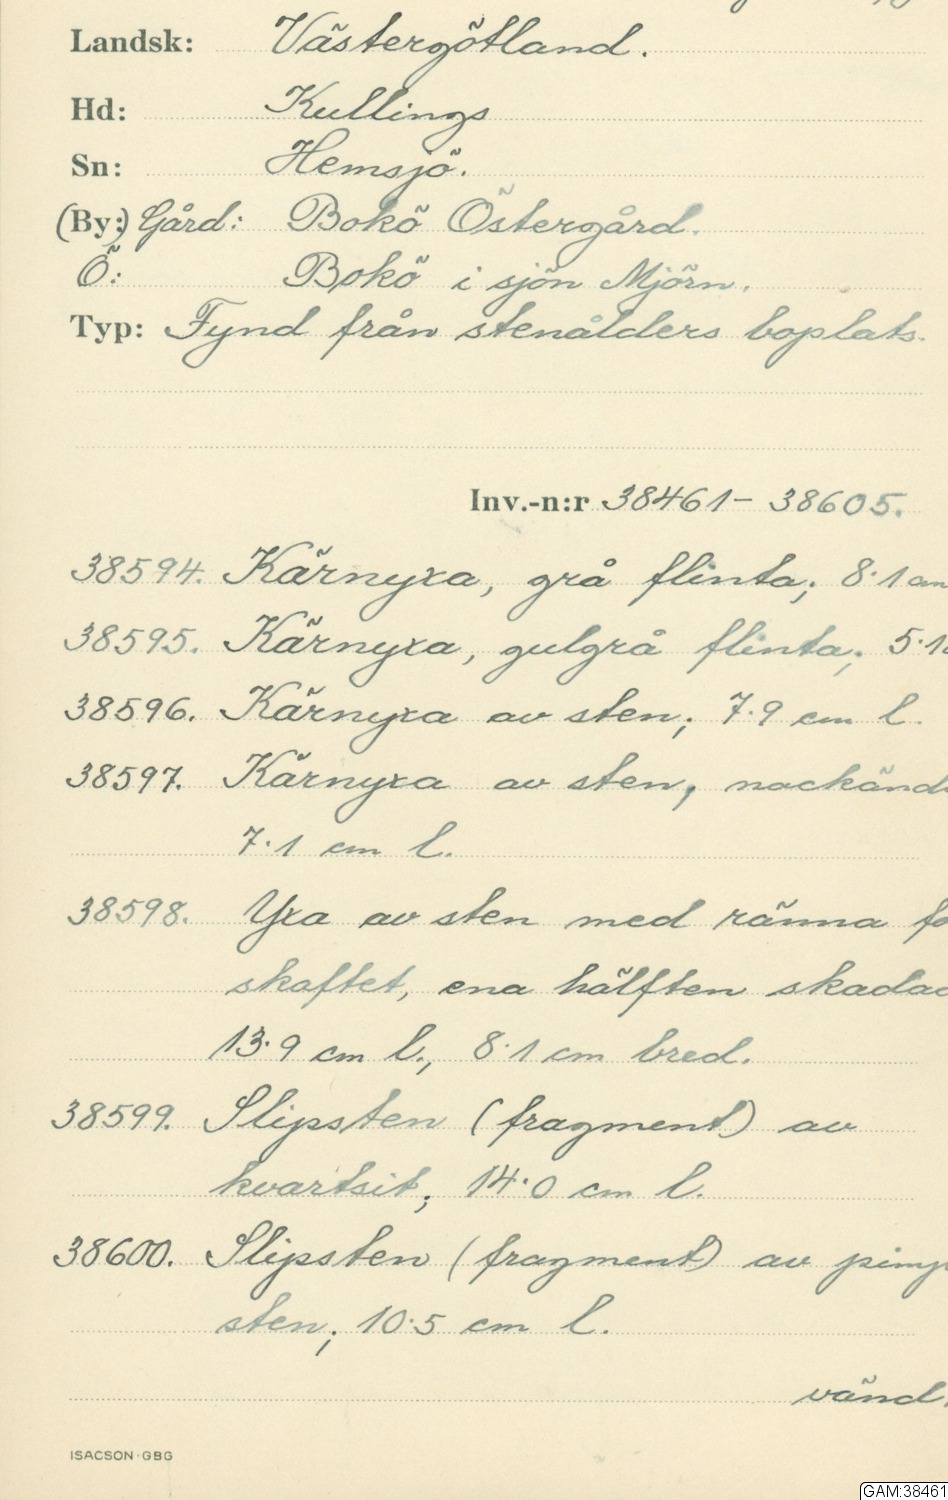 Landsk: Västergötland.
Hd: Kullings
Sn: Hemsjö.
(By:) Gård: Bokö Östergård.
Ö: Bokö i sjön Mjörn.
Typ: Fynd från stenålders boplats.
Inv.-n:r 38461 – 38605.
38594. Kärnyxa, grå flinta; 8.1 cm
38595. Kärnyxa, gulgrå flinta;
38596. Kärnyxa av sten; 7.9 cm l.
38597. Kärnyxa av sten,
7.1 cm l.
38598. Yxa av sten med ränna
skaftet, ena hälften
13.9 cm l., 8.1 cm bred.
38599. Slipsten (fragment) av
kvartsit; 14.0 cm l.
38600. Slipsten (fragment) av
sten; 10.5 cm l.
vänd.
ISACSON·GBG
GAM:38461